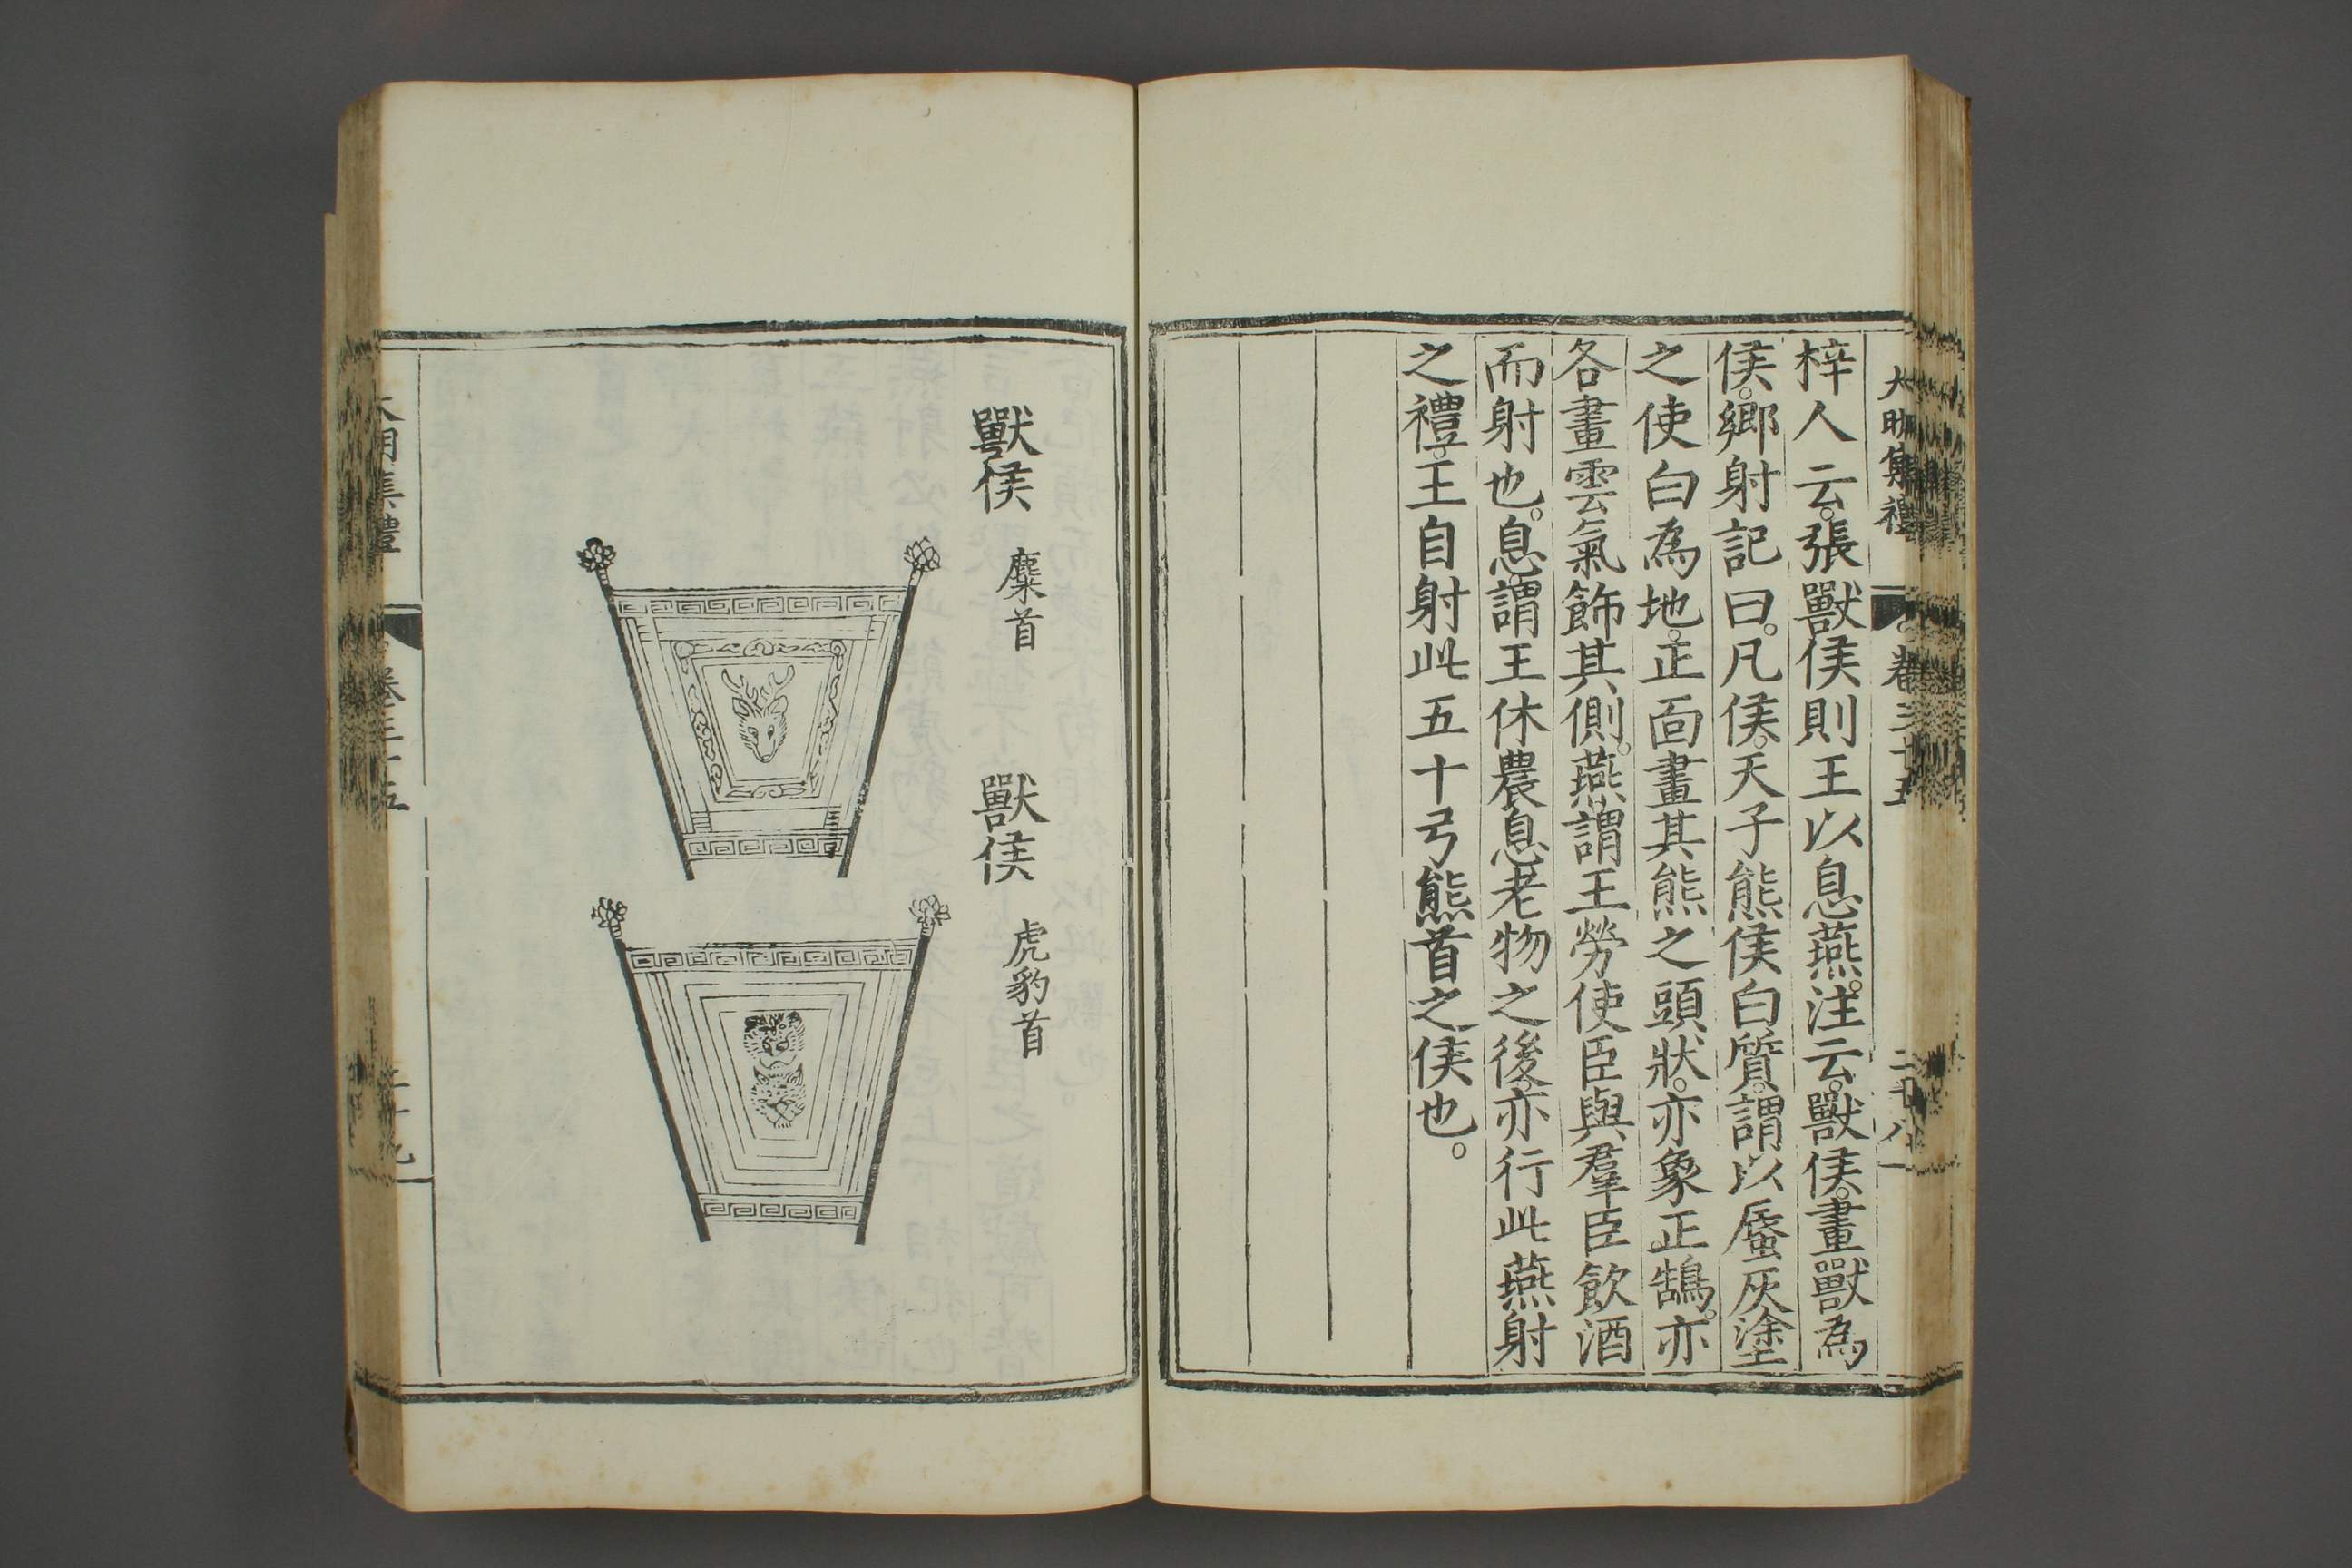 大明集禮 卷三十五 二十八
梓人云。張獸侯則王以息燕。注云。獸侯。畫獸為
侯。鄉射記曰。凡侯。天子熊侯白質。謂以蜃灰塗
之使白為地。正面畫其熊之頭狀。亦象正鵠。亦
各畫雲氣飾其側。燕謂王勞使臣與羣臣飲酒
而射也。息謂王休農息老物之後。亦行此燕射
之禮。王自射此五十弓熊首之侯也。
獸侯 麋首
獸侯 虎豹首
大明集禮 卷三十五 二十九